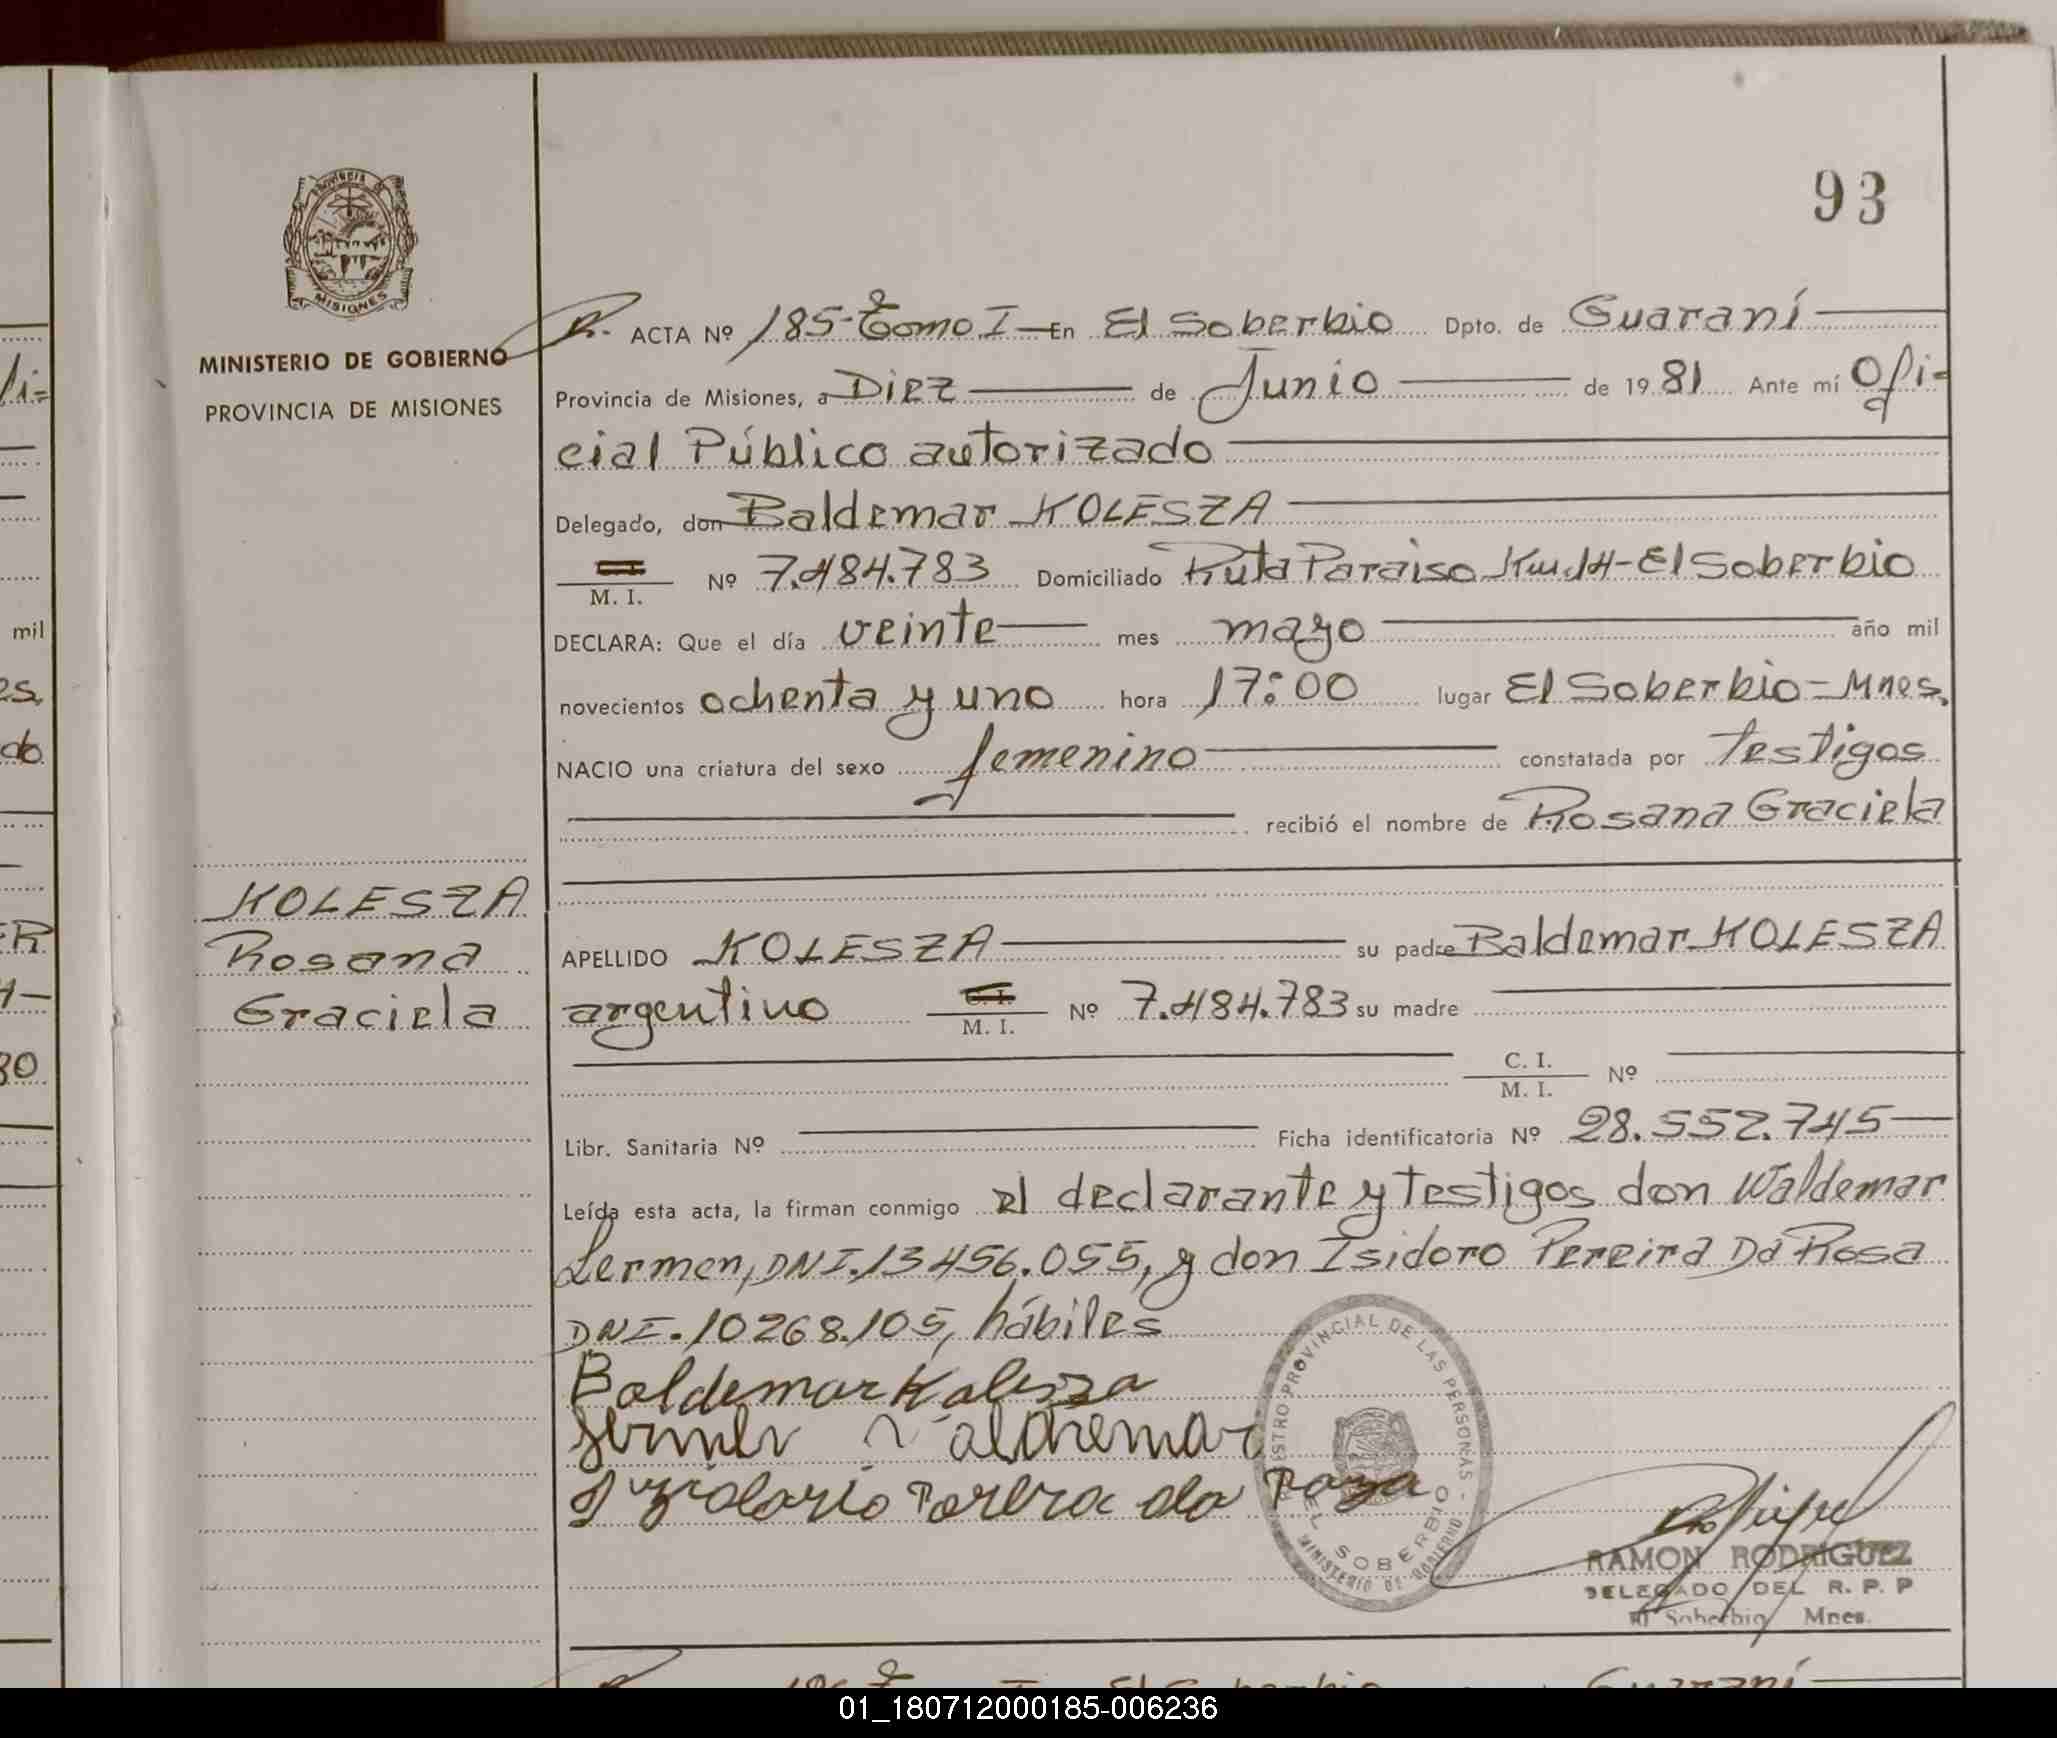 93
MISIONES
MINISTERIO DE GOBIERNO
PROVINCIA DE MISIONES
ACTA Nº 185-Tomo I En El Soberbio Dpto. de Guaraní
Provincia de Misiones, a Diez de Junio de 1981 Ante mí Ofi=
cial Público autorizado
Delegado, don Baldemar KOLESZA
M. I. Nº 7.484.783 Domiciliado Ruta Paraiso Km.14-El Soberbio
DECLARA: Que el día veinte mes mayo año mil
novecientos ochenta y uno hora 17:00 lugar El Soberbio-Mnes.
NACIO una criatura del sexo femenino constatada por testigos
recibió el nombre de Rosana Graciela
KOLESZA
Rosana
Graciela
APELLIDO KOLESZA su padre Baldemar KOLESZA
argentino C. I. M. I. Nº 7.484.783 su madre
C. I. M. I. Nº
Libr. Sanitaria Nº Ficha identificatoria Nº 28.552.745
Leída esta acta, la firman conmigo el declarante y testigos don Waldemar
Lermen, DNI.13456.055, y don Isidoro Pereira Da Rosa
DNI.10268.105, hábiles
Baldemar Kolesza
REGISTRO PROVINCIAL DE LAS PERSONAS - MINISTERIO DE GOBIERNO
EL SOBERBIO
RAMON RODRIGUEZ
DELEGADO DEL R. P. P
El Soberbio Mnes.
mil
do
ER
80
01_180712000185-006236